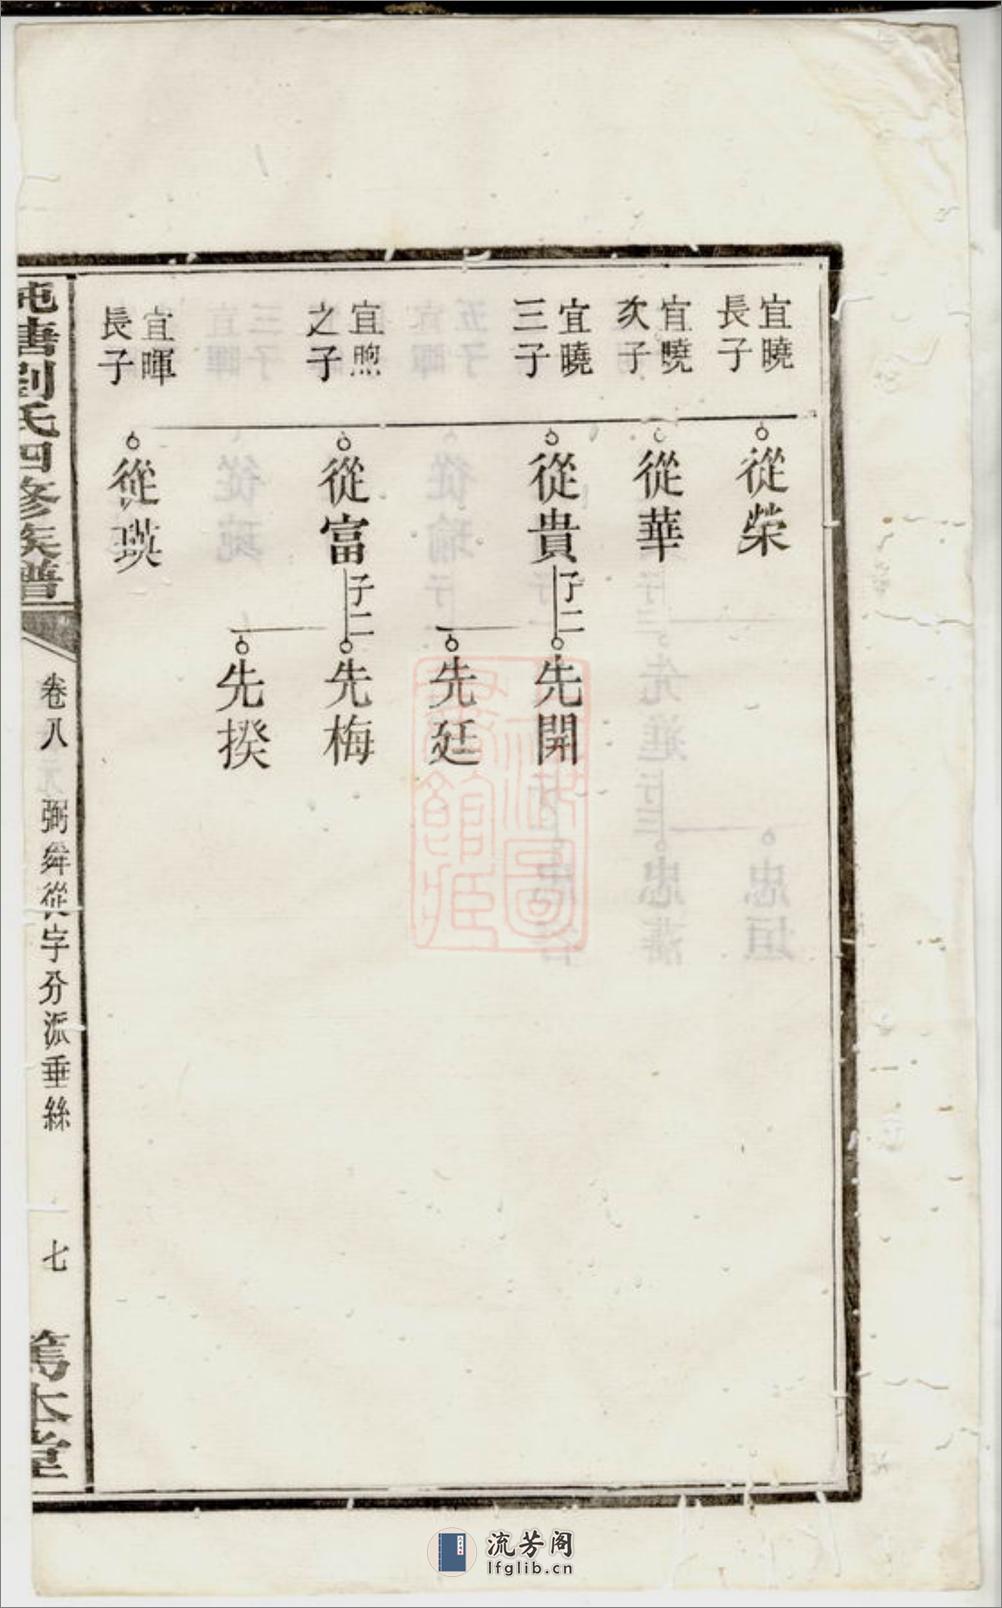 宜曉
長子
從榮
宜曉
次子
從華
宜曉
三子
從貴
子二
先開
先廷
宜煦
之子
從富
子二
先梅
先揆
宜暉
長子
從瑛
塘劉氏四修族譜
卷八
弼舜從字分派垂絲
七
篤本堂
流芳阁
lfglib.cn